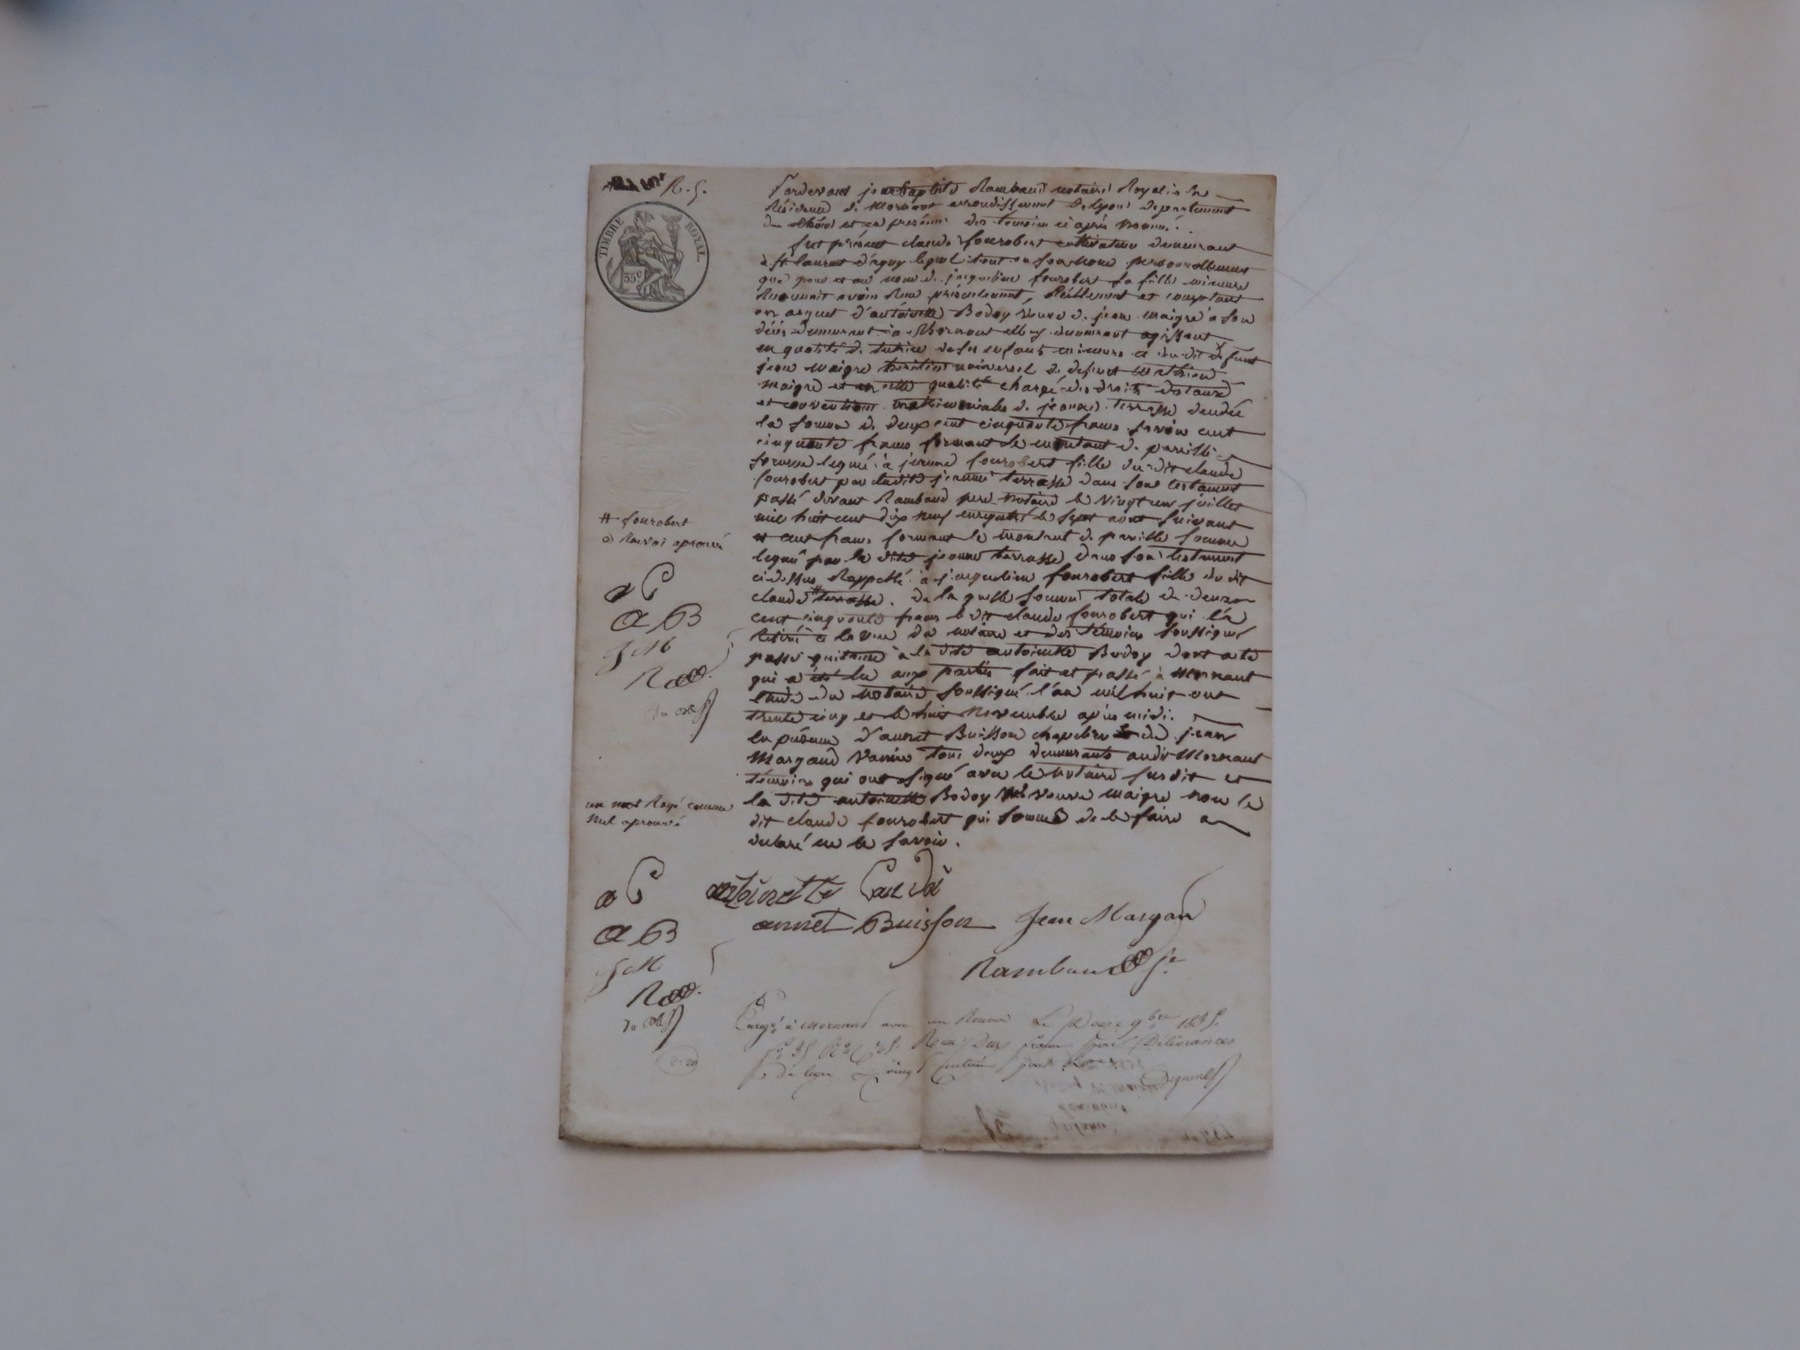 R. S.
TIMBRE ROYAL
35 c
Pardevant jean baptiste Rambaud notaire Royal à la
Résidence de Mornant arrondissement de Lyon departement
du Rhône et en presence des temoins ci après nommé.
fut présent claude fourobert cultivateur demeurant
à st laurent d'agny lequel tant en son nom personnellement
que pour et au nom de jacqueline fourobert sa fille mineure
Reconnait avoir Reçu présentement, Réellement et comptant
en argent d'antoinette Bodoy veuve de jean maigre à son
décès demeurant à Mornant elle y demeurant agissant
en qualité de tutrice de ses enfants mineurs et du dit défunt
jean maigre héritier universel de defunt mathieu
maigre et en cette qualité chargé des droits
et conventions matrimoniales de jeanne terrasse
la somme de deux cent cinquante francs savoir cent
cinquante francs formant le montant de pareille
somme legué à jeanne fourobert fille du dit claude
fourobert par ladite jeanne terrasse dans son testament
passé devant Rambaud pere notaire le vingt un juillet
mil huit cent dix neuf enregistré le sept aout suivant
et cent francs formant le montant de pareille somme
legué par la dite jeanne terrasse dans son testament
ci dessus Rappellé à jacqueline fourobert fille du dit
claude # terrasse. de laquelle somme totale de deux
cent cinquante francs le dit claude fourobert qui l'a
Retiré à la vue du notaire et des témoins soussigné
passe quittance à la dite antoinette Bodoy dont acte
qui a été lu aux parties fait et passé à Mornant
étude du notaire soussigné l'an mil huit cent
trente cinq et le huit Novembre après midi.
en présence d'annet Buisson chapelier et de jean
Margand tous deux demeurants audit Mornant
témoins qui ont signé avec le notaire susdit et
la dite antoinette Bodoy veuve maigre non le
dit claude fourobert qui sommé de le faire a
declaré ne le savoir.
# fourobert
à Renvoi aprouvé
a B
J M
un mot Rayé comme
Nul aprouvé
a B
J M
antoinette
annet Buisson Jean Margan
Rambaud
Enregé à Mornant avec un Renvoi Le 9bre 1835.
Reçu Deux francs pour Délivrance
de legs vingt Centimes pour